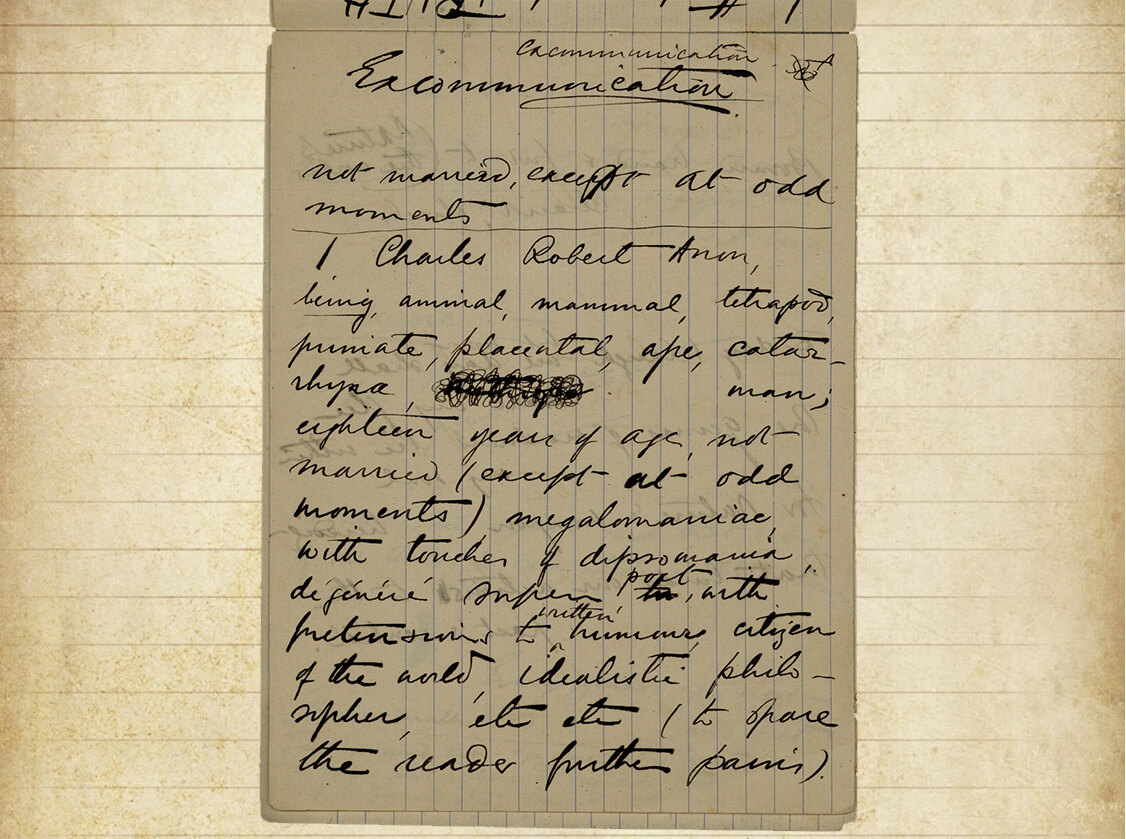 Excommunication
Excommunication.
not married, except at odd
moments
I Charles Robert Anon,
being, animal, mammal, tetrapod,
primate, placental, ape, catar-
rhyna, man;
eighteen years of age, not
married (except at odd
moments), megalomaniac,
with touches of dipsomania,
dégénéré poet, with
pretensions to written humour, citizen
of the world, idealistic philo-
sopher, etc etc (to spare
the reader further pains).